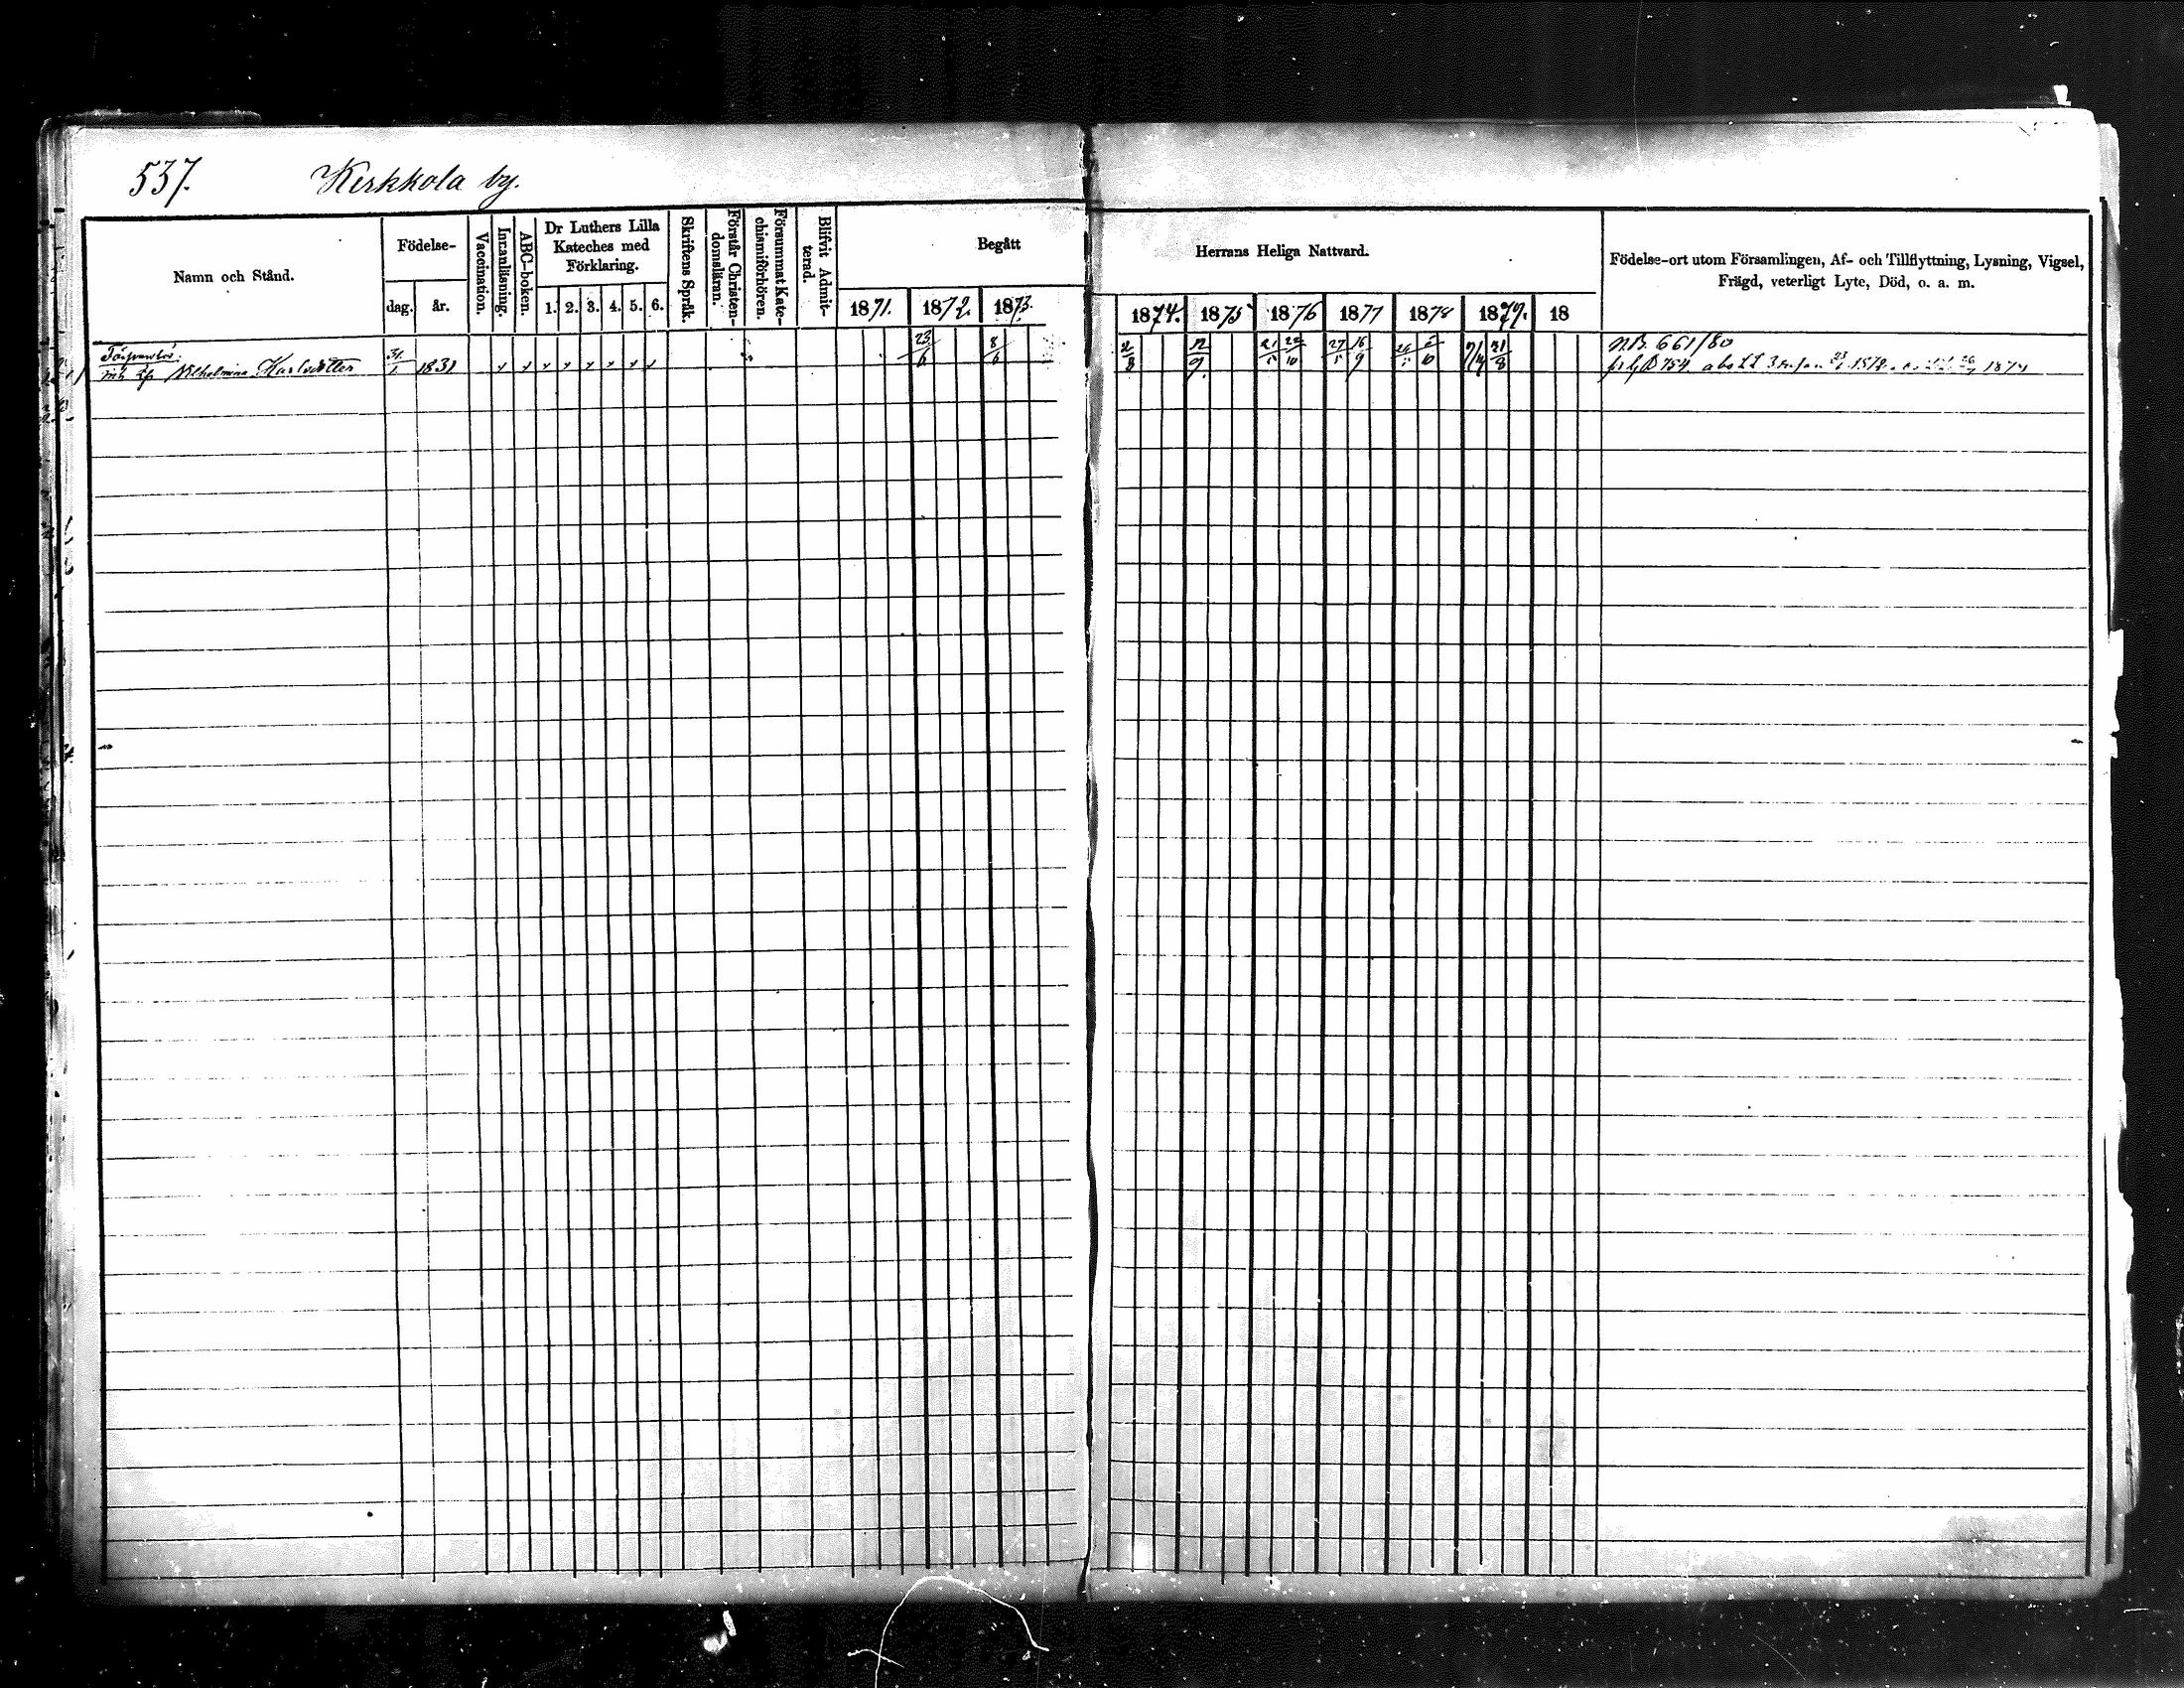 537. Kirkkola by.
Namn och Stånd.
Födelse-
dag. år.
Vaccination.
Innanläsning.
ABC-boken.
Dr Luthers Lilla
Kateches med
Förklaring.
1. 2. 3. 4. 5. 6.
Skriftens Språk.
Förstår Christen-
domsläran.
Försummat Kate-
chismiförhören.
Blifvit Admit-
terad.
Begått
1871. 1872. 1873.
Herrans Heliga Nattvard.
1874. 1875 1876 1877 1878 1879. 18
Födelse-ort utom Församlingen, Af- och Tillflyttning, Lysning, Vigsel,
Frägd, veterligt Lyte, Död, o. a. m.
Wilhelmina Karlsdotter 31/1 1831 23/6 8/6 2/8 12/9 21/5 22/10 27/5 16/9 31/8
NB. 661/80
754